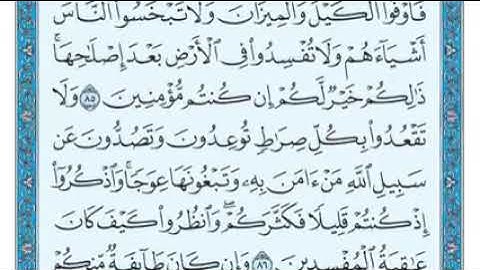 فَأَوْفُوا۟ ٱلْكَيْلَ وَٱلْمِيزَانَ وَلَا تَبْخَسُوا۟ ٱلنَّاسَ
أَشْيَآءَهُمْ وَلَا تُفْسِدُوا۟ فِى ٱلْأَرْضِ بَعْدَ إِصْلَٰحِهَا ۚ
ذَٰلِكُمْ خَيْرٌ لَّكُمْ إِن كُنتُم مُّؤْمِنِينَ ٨٥ وَلَا
تَقْعُدُوا۟ بِكُلِّ صِرَٰطٍ تُوعِدُونَ وَتَصُدُّونَ عَن
سَبِيلِ ٱللَّهِ مَنْ ءَامَنَ بِهِۦ وَتَبْغُونَهَا عِوَجًا ۚ وَٱذْكُرُوٓا۟
إِذْ كُنتُمْ قَلِيلًا فَكَثَّرَكُمْ ۖ وَٱنظُرُوا۟ كَيْفَ كَانَ
عَٰقِبَةُ ٱلْمُفْسِدِينَ ٨٦ وَإِن كَانَ طَآئِفَةٌ مِّنكُمْ